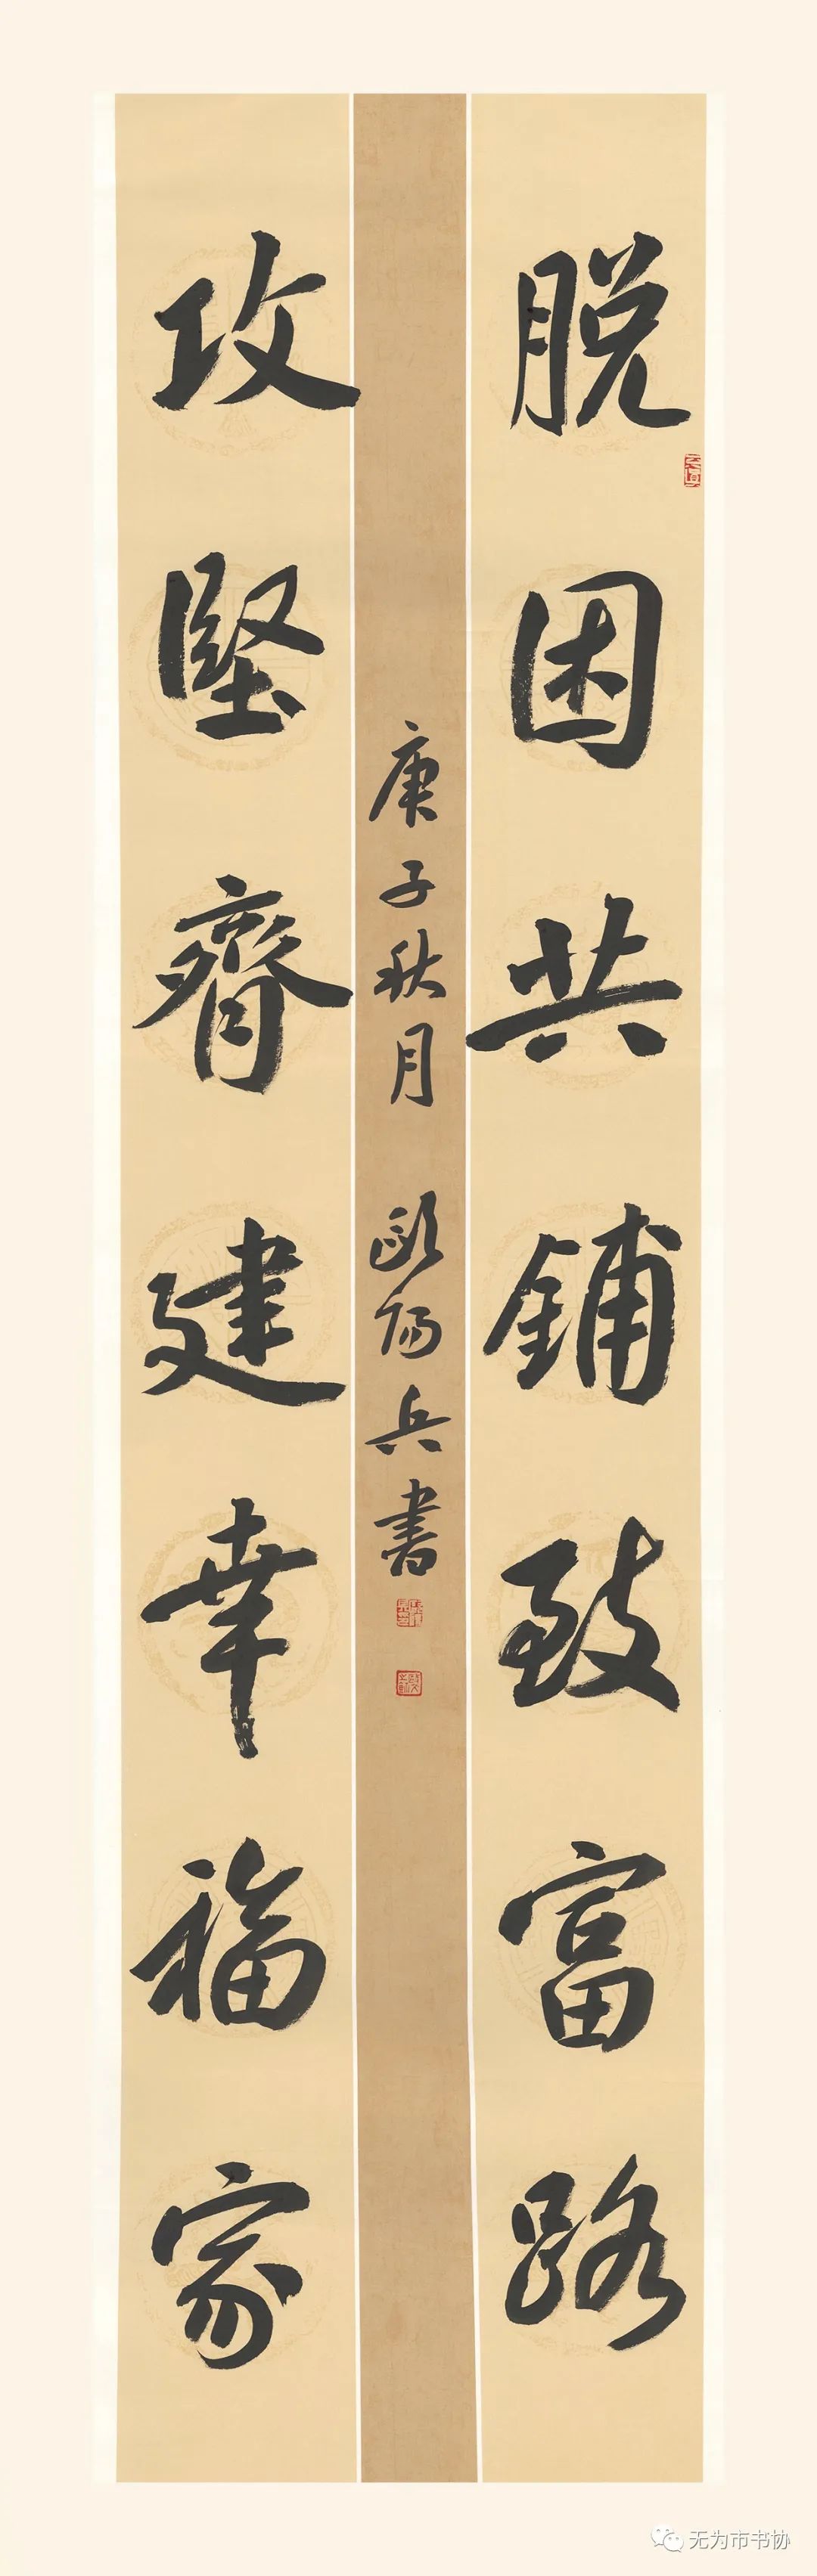 脱困共铺致富路
攻堅齊建幸福家
庚子秋月 歐陽兵書
无为市书协